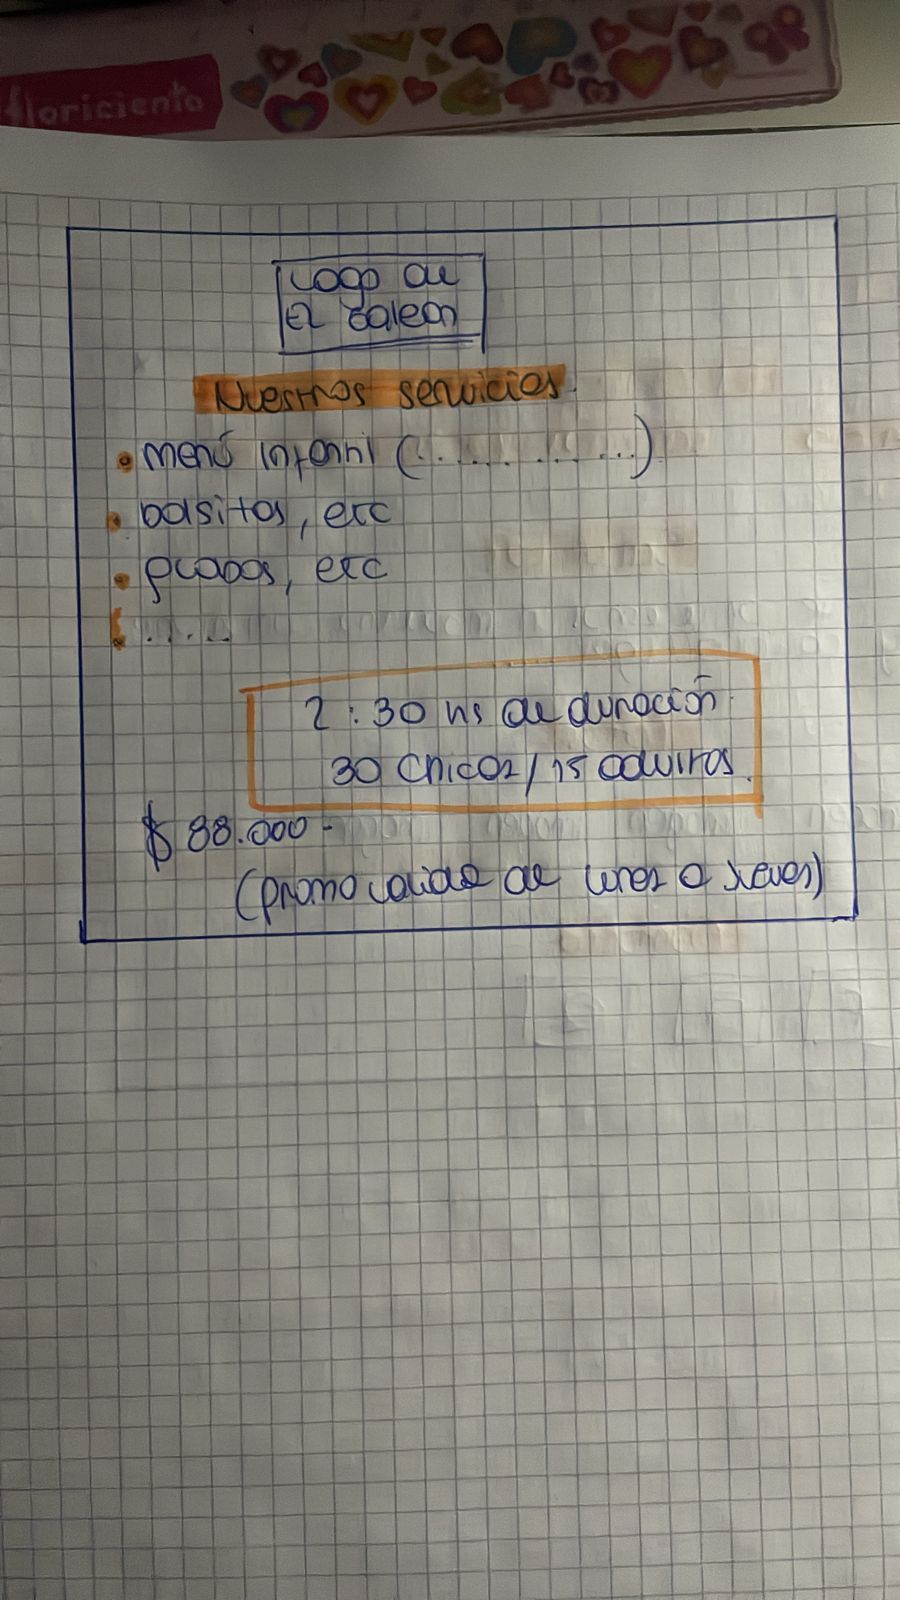 floricienta
Logo de
El Galeon
Nuestros servicios.
• menú infantil (.............)
• bolsitas, etc
• globos, etc
.....
2:30 hs de duración.
30 chicos / 15 adultos.
$ 88.000-
(promo valida de lunes a jueves)